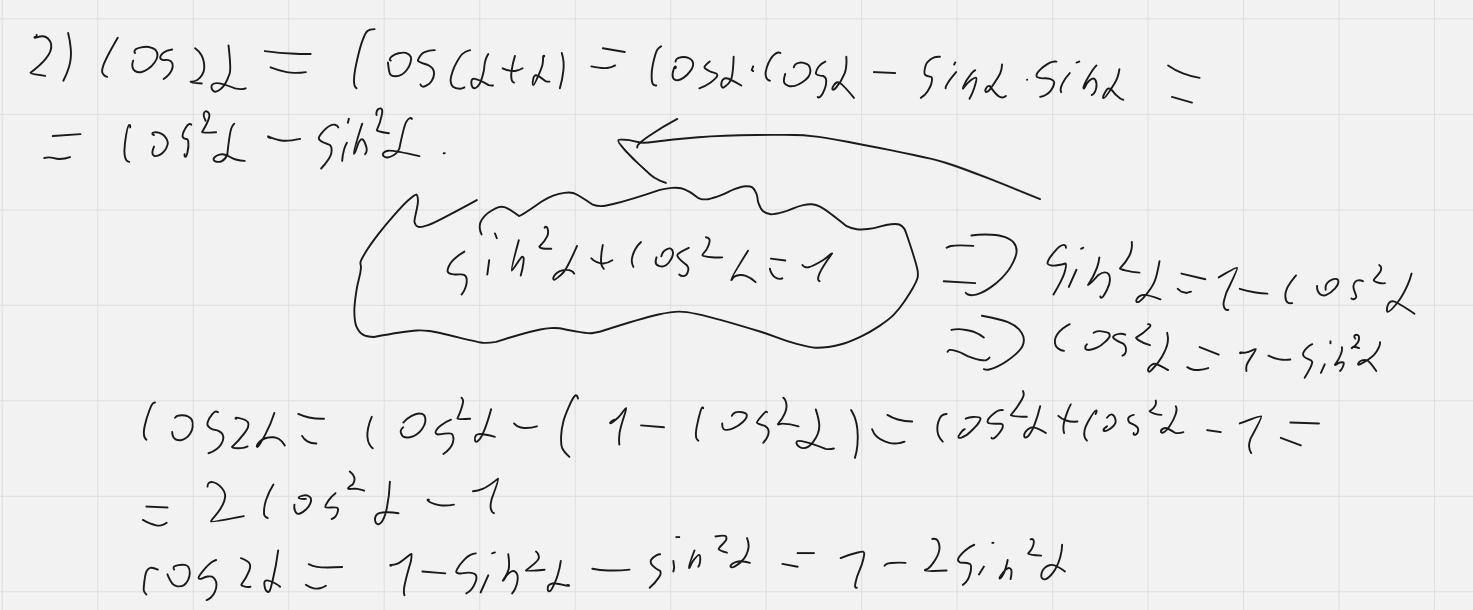 2) cos2α = cos(α+α) = cosα·cosα − sinα·sinα =
= cos²α − sin²α.
sin²α + cos²α = 1 ⇒ sin²α = 1 − cos²α
⇒ cos²α = 1 − sin²α
cos2α = cos²α − (1 − cos²α) = cos²α + cos²α − 1 =
= 2cos²α − 1
cos2α = 1 − sin²α − sin²α = 1 − 2sin²α